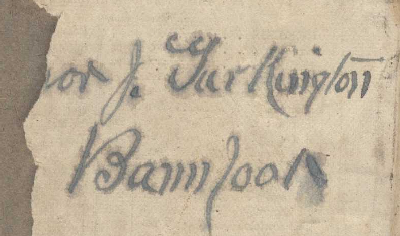 nor J. Turkington
Bannfoot